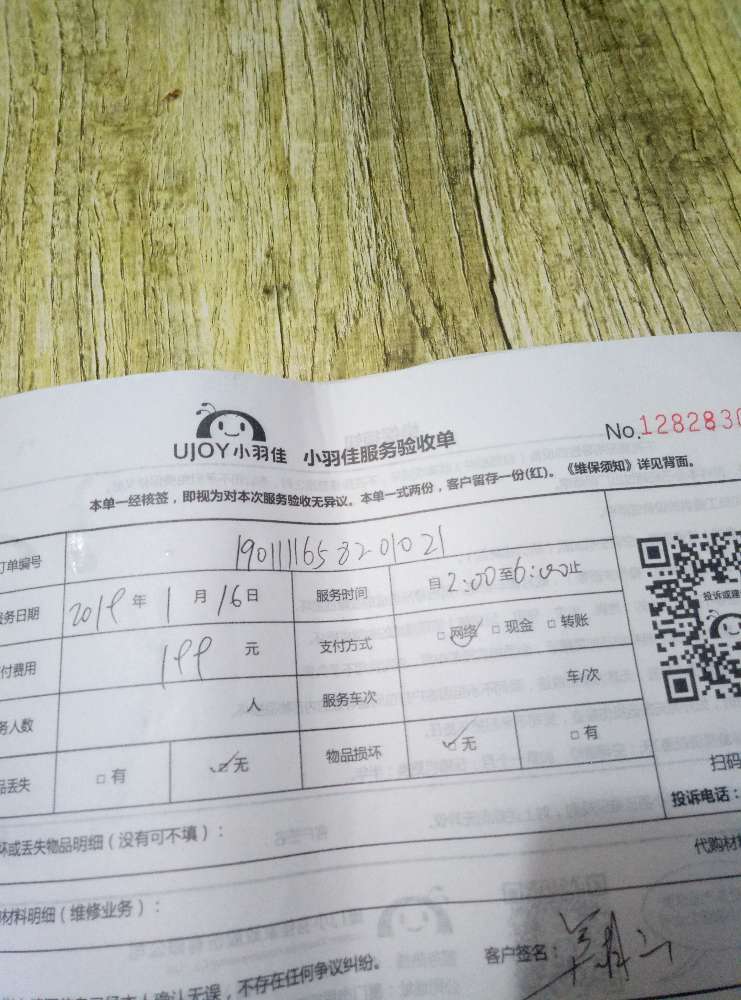 UJOY小羽佳 小羽佳服务验收单 No.1282830
本单一经核签，即视为对本次服务验收无异议。本单一式两份，客户留存一份(红)。《维保须知》详见背面。
订单编号 190111165820 1021
务日期 2019年1月16日 服务时间 自2:00至6:00止
付费用 199元 支付方式 □网络 □现金 □转账
务人数 人 服务车次 车/次
品丢失 □有 ☑无 物品损坏 ☑无 □有
投诉或建
扫码
投诉电话：
坏或丢失物品明细（没有可不填）：
代购材
材料明细（维修业务）：
客户签名：
已经本人确认无误，不存在任何争议纠纷。